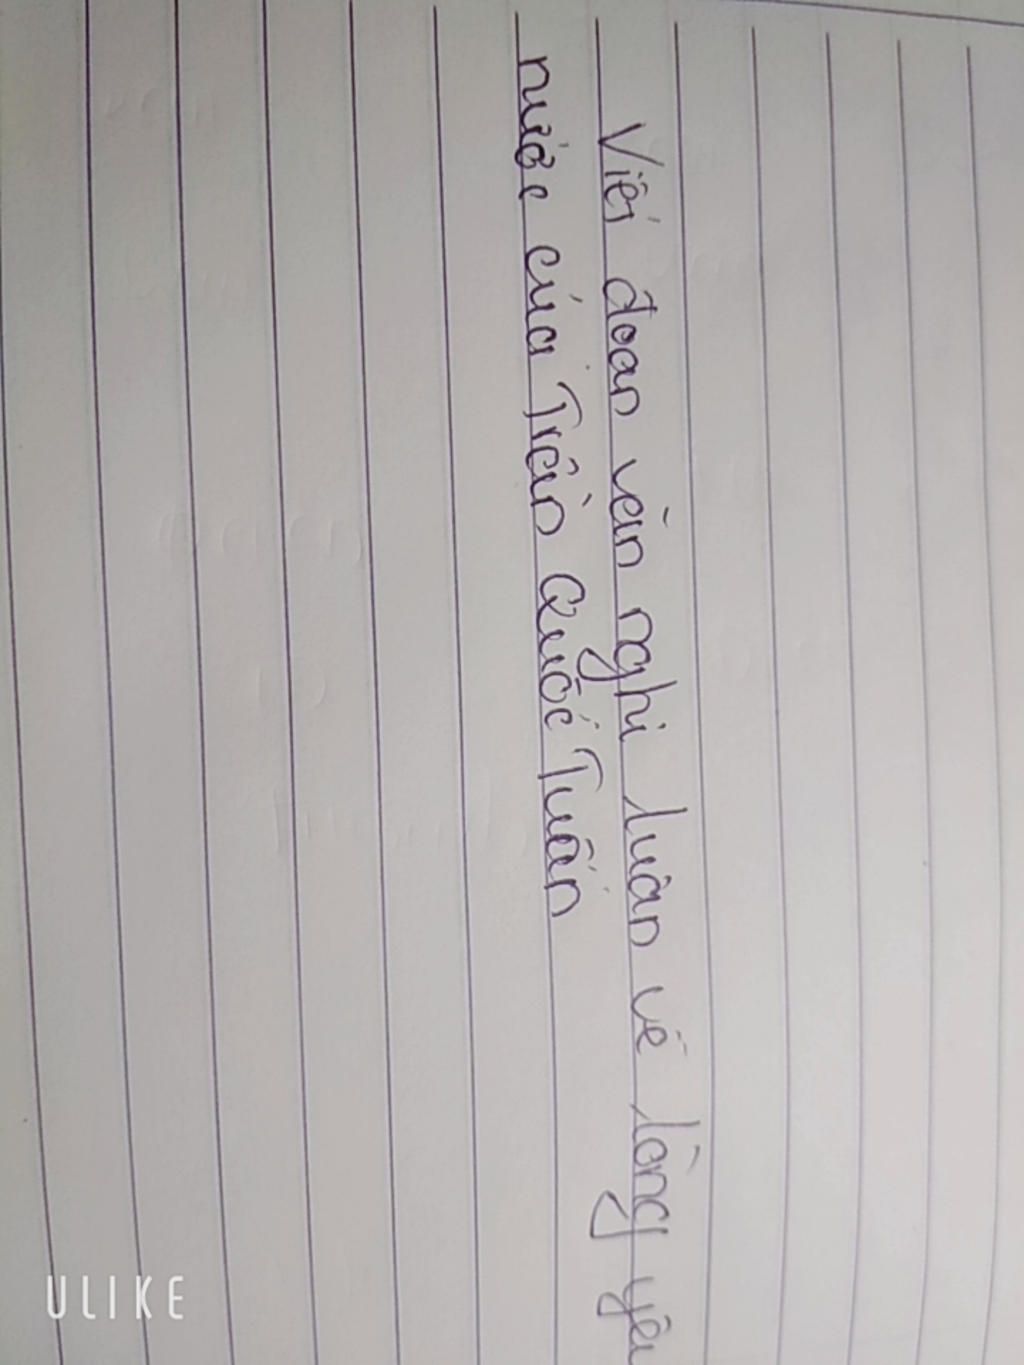 Viết đoan văn nghi luân về lòng yêu
nước của Trần Quốc Tuấn
ULIKE